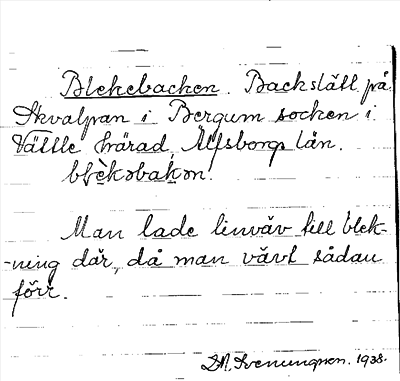 Blekebacken. Backslätt på
Skvalpan i Bergum socken i
Vättle härad, Älfsborgs län.
blèkəbakən.
Man lade linväv till blek-
-ning där, då man vävt sådan
förr.
D.N. Svenungsson. 1938.